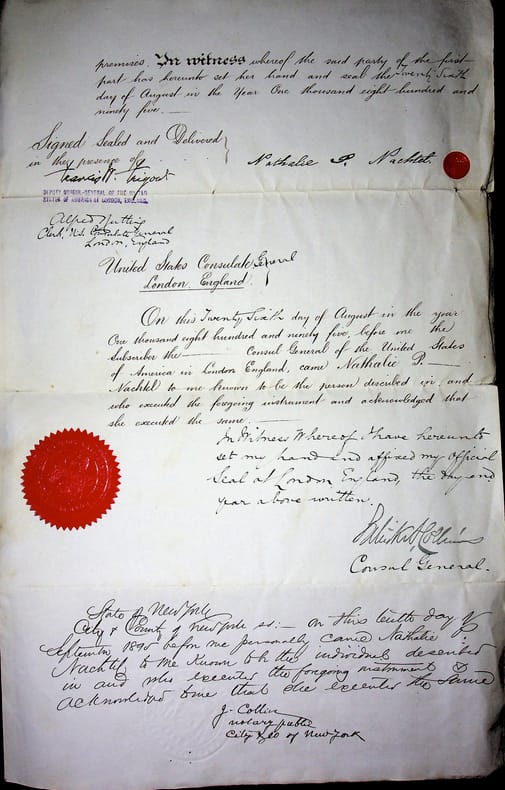 premises. In witness whereof the said party of the first
part has hereunto set her hand and seal the Twenty Sixth
day of August in the Year One thousand eight hundred and
ninety five.
Signed Sealed and Delivered
in the presence of
Nathalie P. Nachtel
DEPUTY CONSUL-GENERAL OF THE UNITED
STATES OF AMERICA AT LONDON, ENGLAND.
Alfred Nutting
Clerk, U.S. Consulate General
London, England
United States Consulate General
London England.
On this Twenty Sixth day of August in the year
One thousand eight hundred and ninety five, before me the
Subscriber the Consul General of the United States
of America in London England, came Nathalie P.
Nachtel to me known to be the person described in, and
who executed the foregoing instrument and acknowledged that
she executed the same.
In Witness Whereof I have hereunto
set my hand and affixed my Official
Seal at London England, the day and
year above written.
Collins
Consul General.
State of New York
City & County of New York ss:- On this tenth day of
September 1895 before me personally came Nathalie
Nachtel to me Known to be the individual described
in and who executed the foregoing instrument &
acknowledged to me that she executed the same
J. Collin
notary public
City & Co of New York